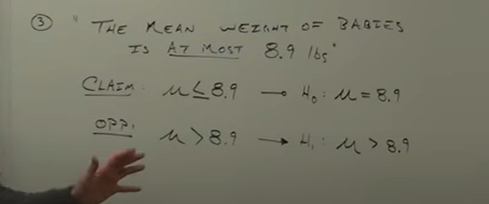 ③ " THE MEAN WEIGHT OF BABIES
IS AT MOST 8.9 lbs"
CLAIM: μ ≤ 8.9 → H₀: μ = 8.9
OPP: μ > 8.9 → H₁: μ > 8.9